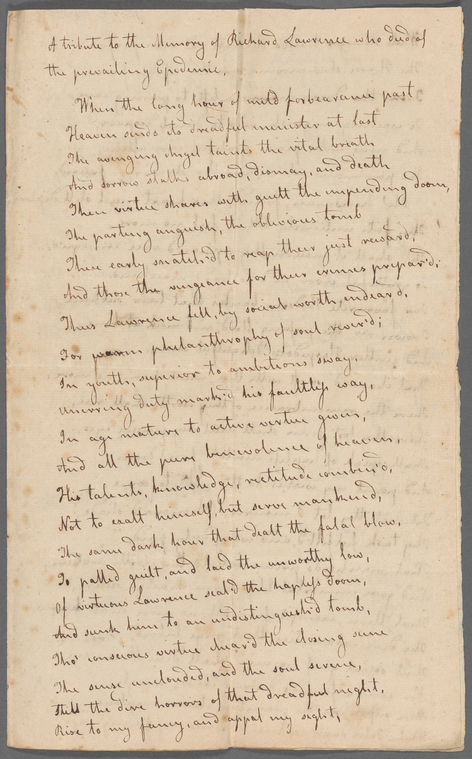 A tribute to the Memory of Richard Lawrence who died of
the prevailing Epidemic.
When the long hour of mild forbearance past
Heaven sends its dreadful minister at last
The avenging Angel taints the vital breath
And sorrow stalks abroad, dismay, and death
Then virtue shares with guilt the impending doom,
The parting anguish, the oblivious tomb
These early snatch'd to reap their just reward,
And those the vengeance for their crimes prepar'd;
Thus Lawrence fell, by social worth, endear'd,
For warm philanthrophy of soul rever'd;
In youth, superior to ambitions sway,
Unerring duty mark'd his faultless way,
In age mature to active virtue given,
And all the pure benevolence of heaven,
His talents, knowledge, rectitude combin'd,
Not to exalt himself, but serve mankind,
The same dark hour that dealt the fatal blow,
To palled guilt, and laid the unworthy low,
Of virtuous Lawrence seal'd the hapless doom,
And sunk him to an undistinguish'd tomb,
Tho' conscious virtue chear'd the closing scene
The sense unclouded, and the soul serene,
Still the dire horrors of that dreadful night,
Rise to my fancy, and appal my sight,